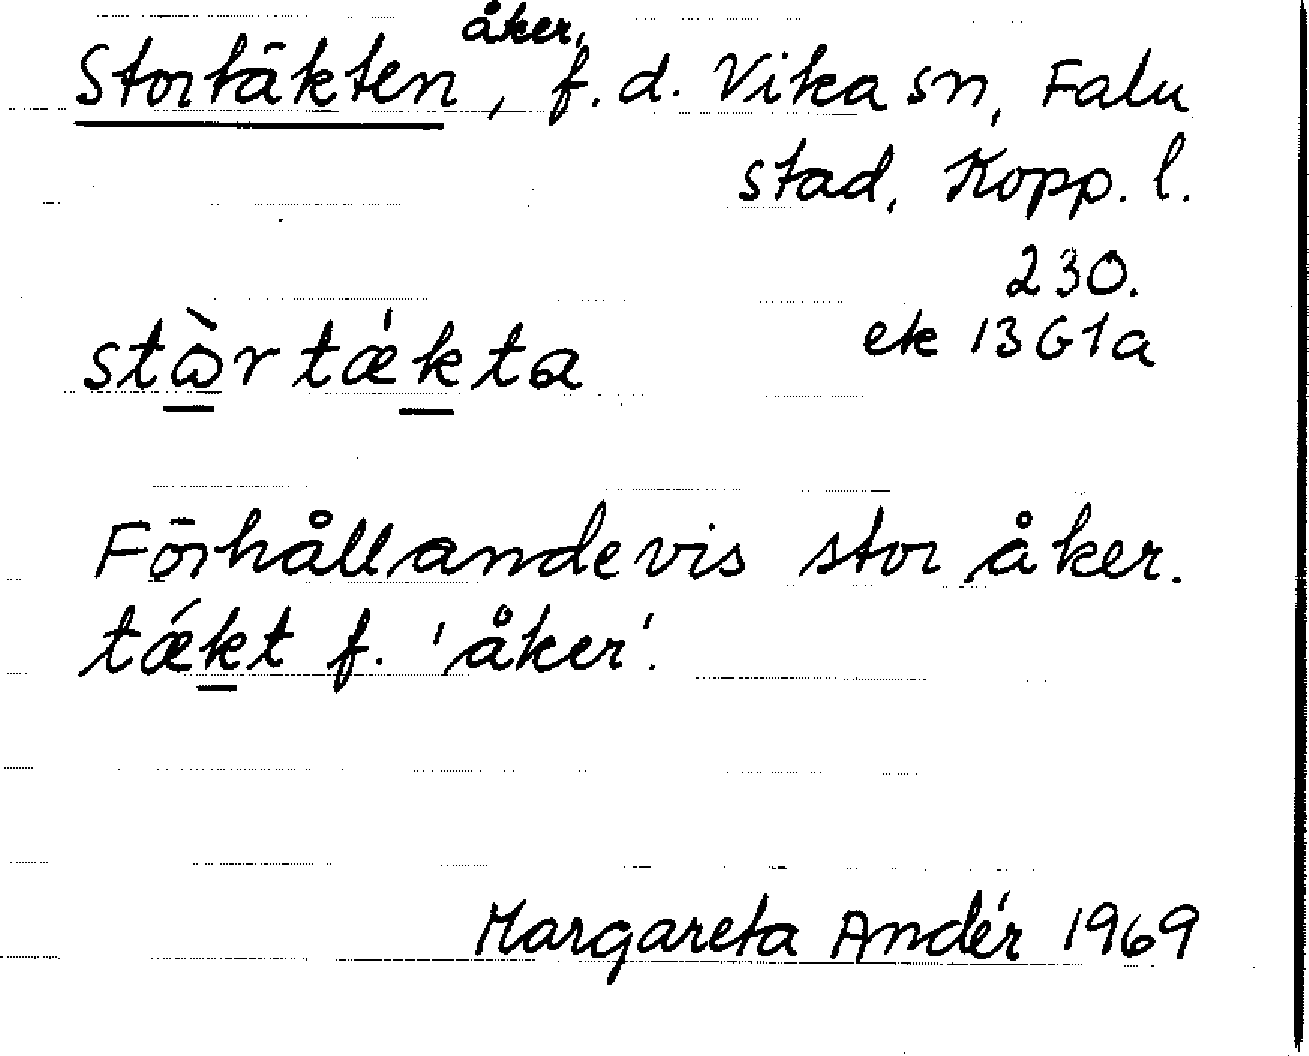 Stortäkten, åker, f.d. Vika sn, Falu
stad, Kopp. l.
230.
ek 13G1a
stὼrtǽkta
Förhållandevis stor åker.
tǽkt f. 'åker'.
Margareta Andér 1969